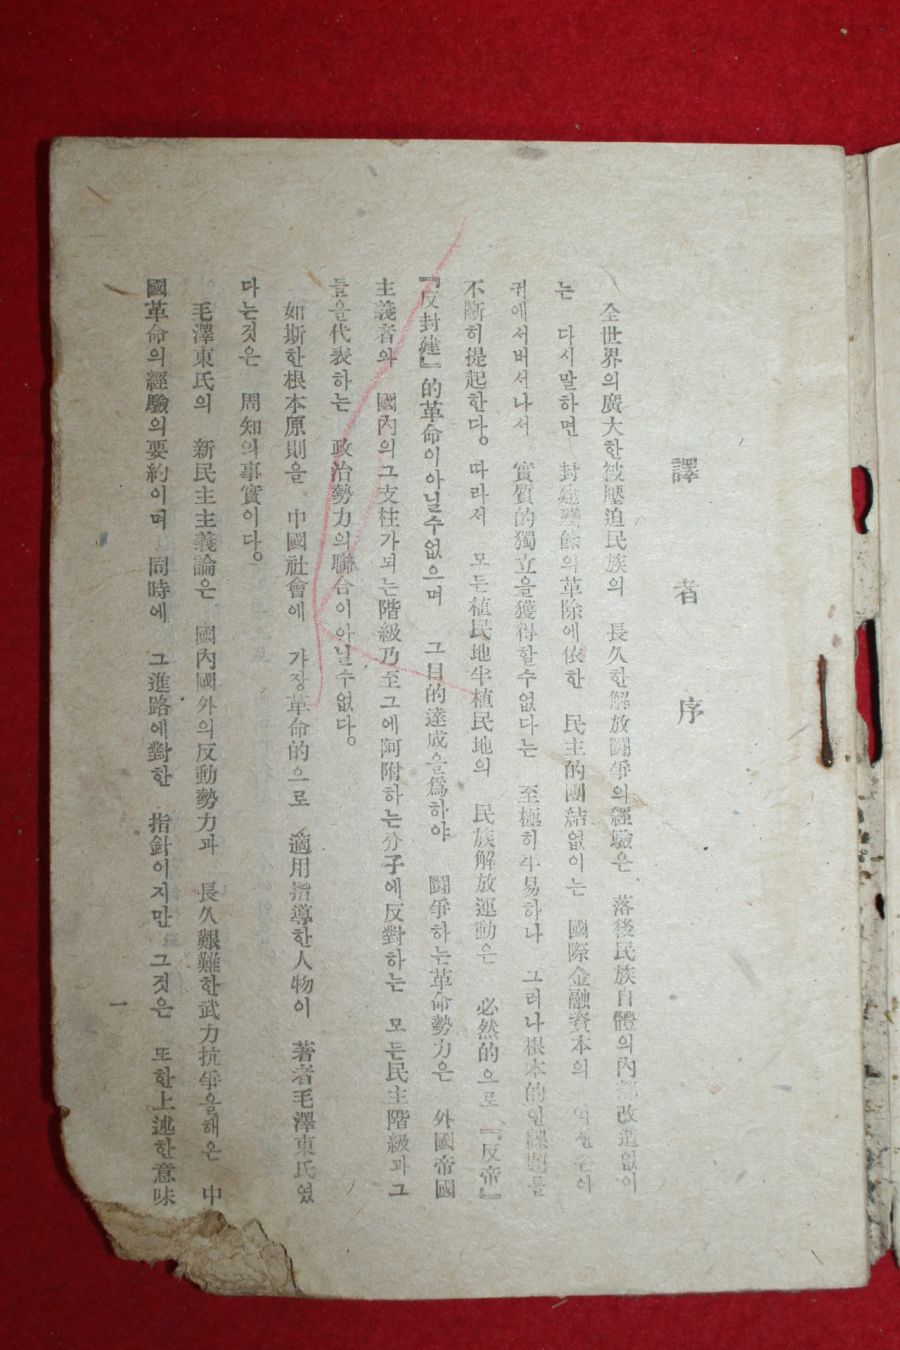 譯者序
全世界의廣大한被壓迫民族의 長久한解放鬪爭의經驗은 落後民族自體의內部改造없이
는 다시말하면 封建殘餘의革除에依한 民主的團結없이는 國際金融資本의
귀에서버서나서 實質的獨立을獲得할수없다는 至極히 易하나 그러나根本的인課題를
不斷히提起한다。따라서 모든植民地半植民地의 民族解放運動은 必然的으로『反帝』
『反封建』的革命이아닐수없으며 그目的達成을爲하야 鬪爭하는革命勢力은 外國帝國
主義者와 國內의그支柱가되는階級乃至그에阿附하는分子에反對하는 모든民主階級과그
들을代表하는 政治勢力의聯合이아닐수없다。
如斯한根本原則을 中國社會에 가장革命的으로 適用指導한人物이 著者毛澤東氏였
다는것은 周知의事實이다。
毛澤東氏의 新民主主義論은 國內國外의反動勢力과 長久艱難한武力抗爭을해온 中
國革命의經驗의要約이며 同時에 그進路에對한 指針이지만 그것은 또한上述한意味
一